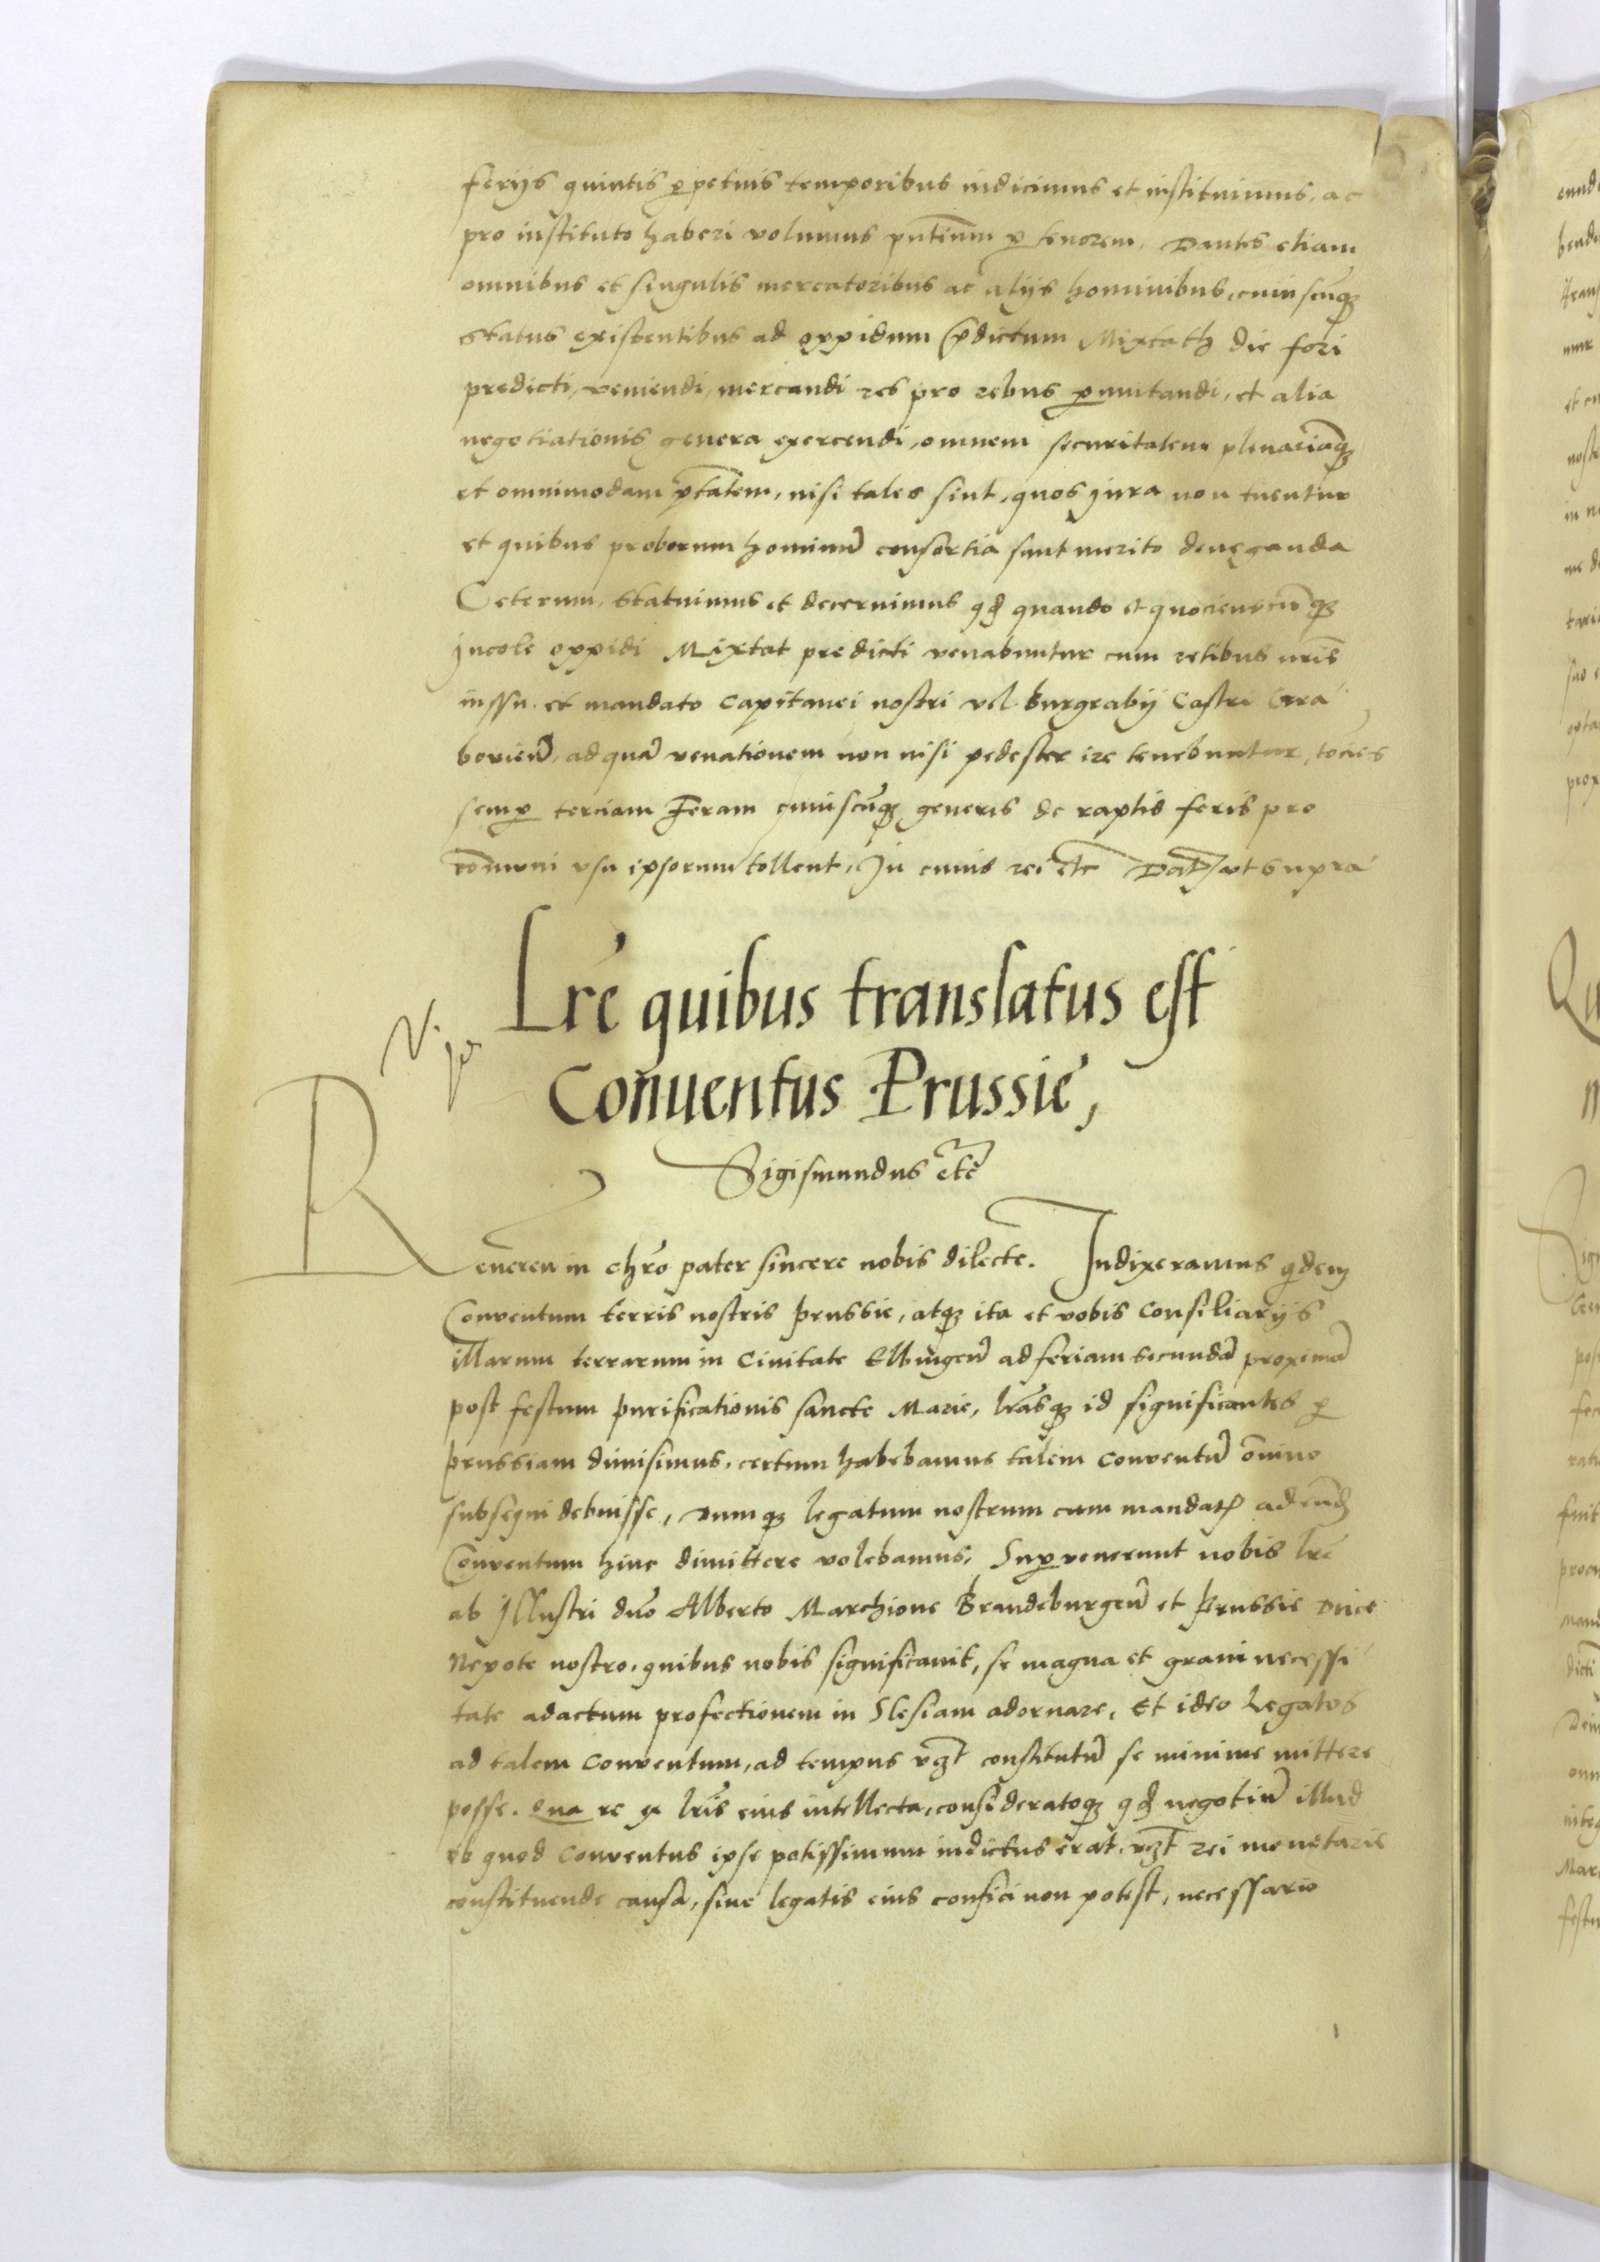 ferijs quintis ꝑpetuis temporibus indicimus et instituimus, ac
pro instituto haberi volumus pñtium ꝑ tenorem, Dantes etiam
omnibus et singulis mercatoribus ac alijs hominibus, cuiuscũqꝫ
status existentibus ad oppidum p̃dictum Mixtath die fori
predicti, veniendi, mercandi res pro rebus ꝑmutandi, et alia
negotiationis genera exercendi, omnem securitatem plenariã qꝫ
et omnimodam ptãtem, nisi tales sint, quos jura non tuentur
et quibus proborum hominũ consortia sunt merito deneganda
Ceterum, statuimus et decernimus qđ quando et quocienscũqꝫ
jncole oppidi Mixtat predicti venabuntur cum retibus nr̃is
iussu et mandato Capitanei nostri vel Burgrabij Castri Gra
bovieñ, ad quã venationem non nisi pedester ire tenebuntur, tocies
semꝑ terciam Feram cuiuscũqꝫ generis de raptis feris pro
com̃uni vsu ipsorum tollent, In cuius rei etc̃ Dat̃ vt supra
Lrẽ quibus translatus est
Conuentus Prussie,
Sigismundus etc̃
Reuereñ in chr̃o pater sincere nobis dilecte. Indixeramus qdem
Conventum terris nostris Prussie, atqꝫ ita et vobis Consiliarijs
illarum terrarum in Civitate Elbingeñ ad feriam secundã proximã
post festum purificationis sancte Marie, lrãsqꝫ id significantes ꝑ
Prussiam dimisimus, certum habebamus talem Conventũ om̃ino
subseqni debuisse, Dumqꝫ legatum nostrum cum mandatꝭ ad eund̃
Conventum hinc dimittere volebamus, Suꝑvenerunt nobis lrẽ
ab Jllustri dño Alberto Marchione Brandeburgeñ et Prussie Duce
Nepote nostro, quibus nobis significauit, se magna et graui necessi
tate adactum profectionem in Slesiam adornare, Et ideo Legatos
ad talem Conventum, ad tempus vꝫt constitutũ se minime mittere
posse. Qua re ex lr̃is eius intellecta, consideratoqꝫ qđ negotiũ illud
ob quod Conventus ipse potissimum indictus erat, vꝫt rei monetarie
constituende causa, sine legatis eius confici non potest, necessario